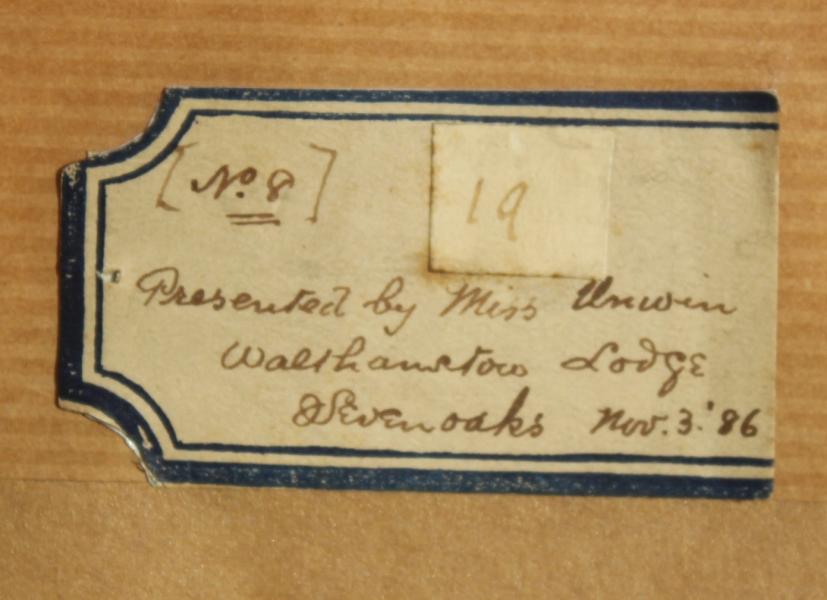 [No. 8]
19
Presented by Miss Unwin
Walthamstow Lodge
Sevenoaks Nov. 3. '86